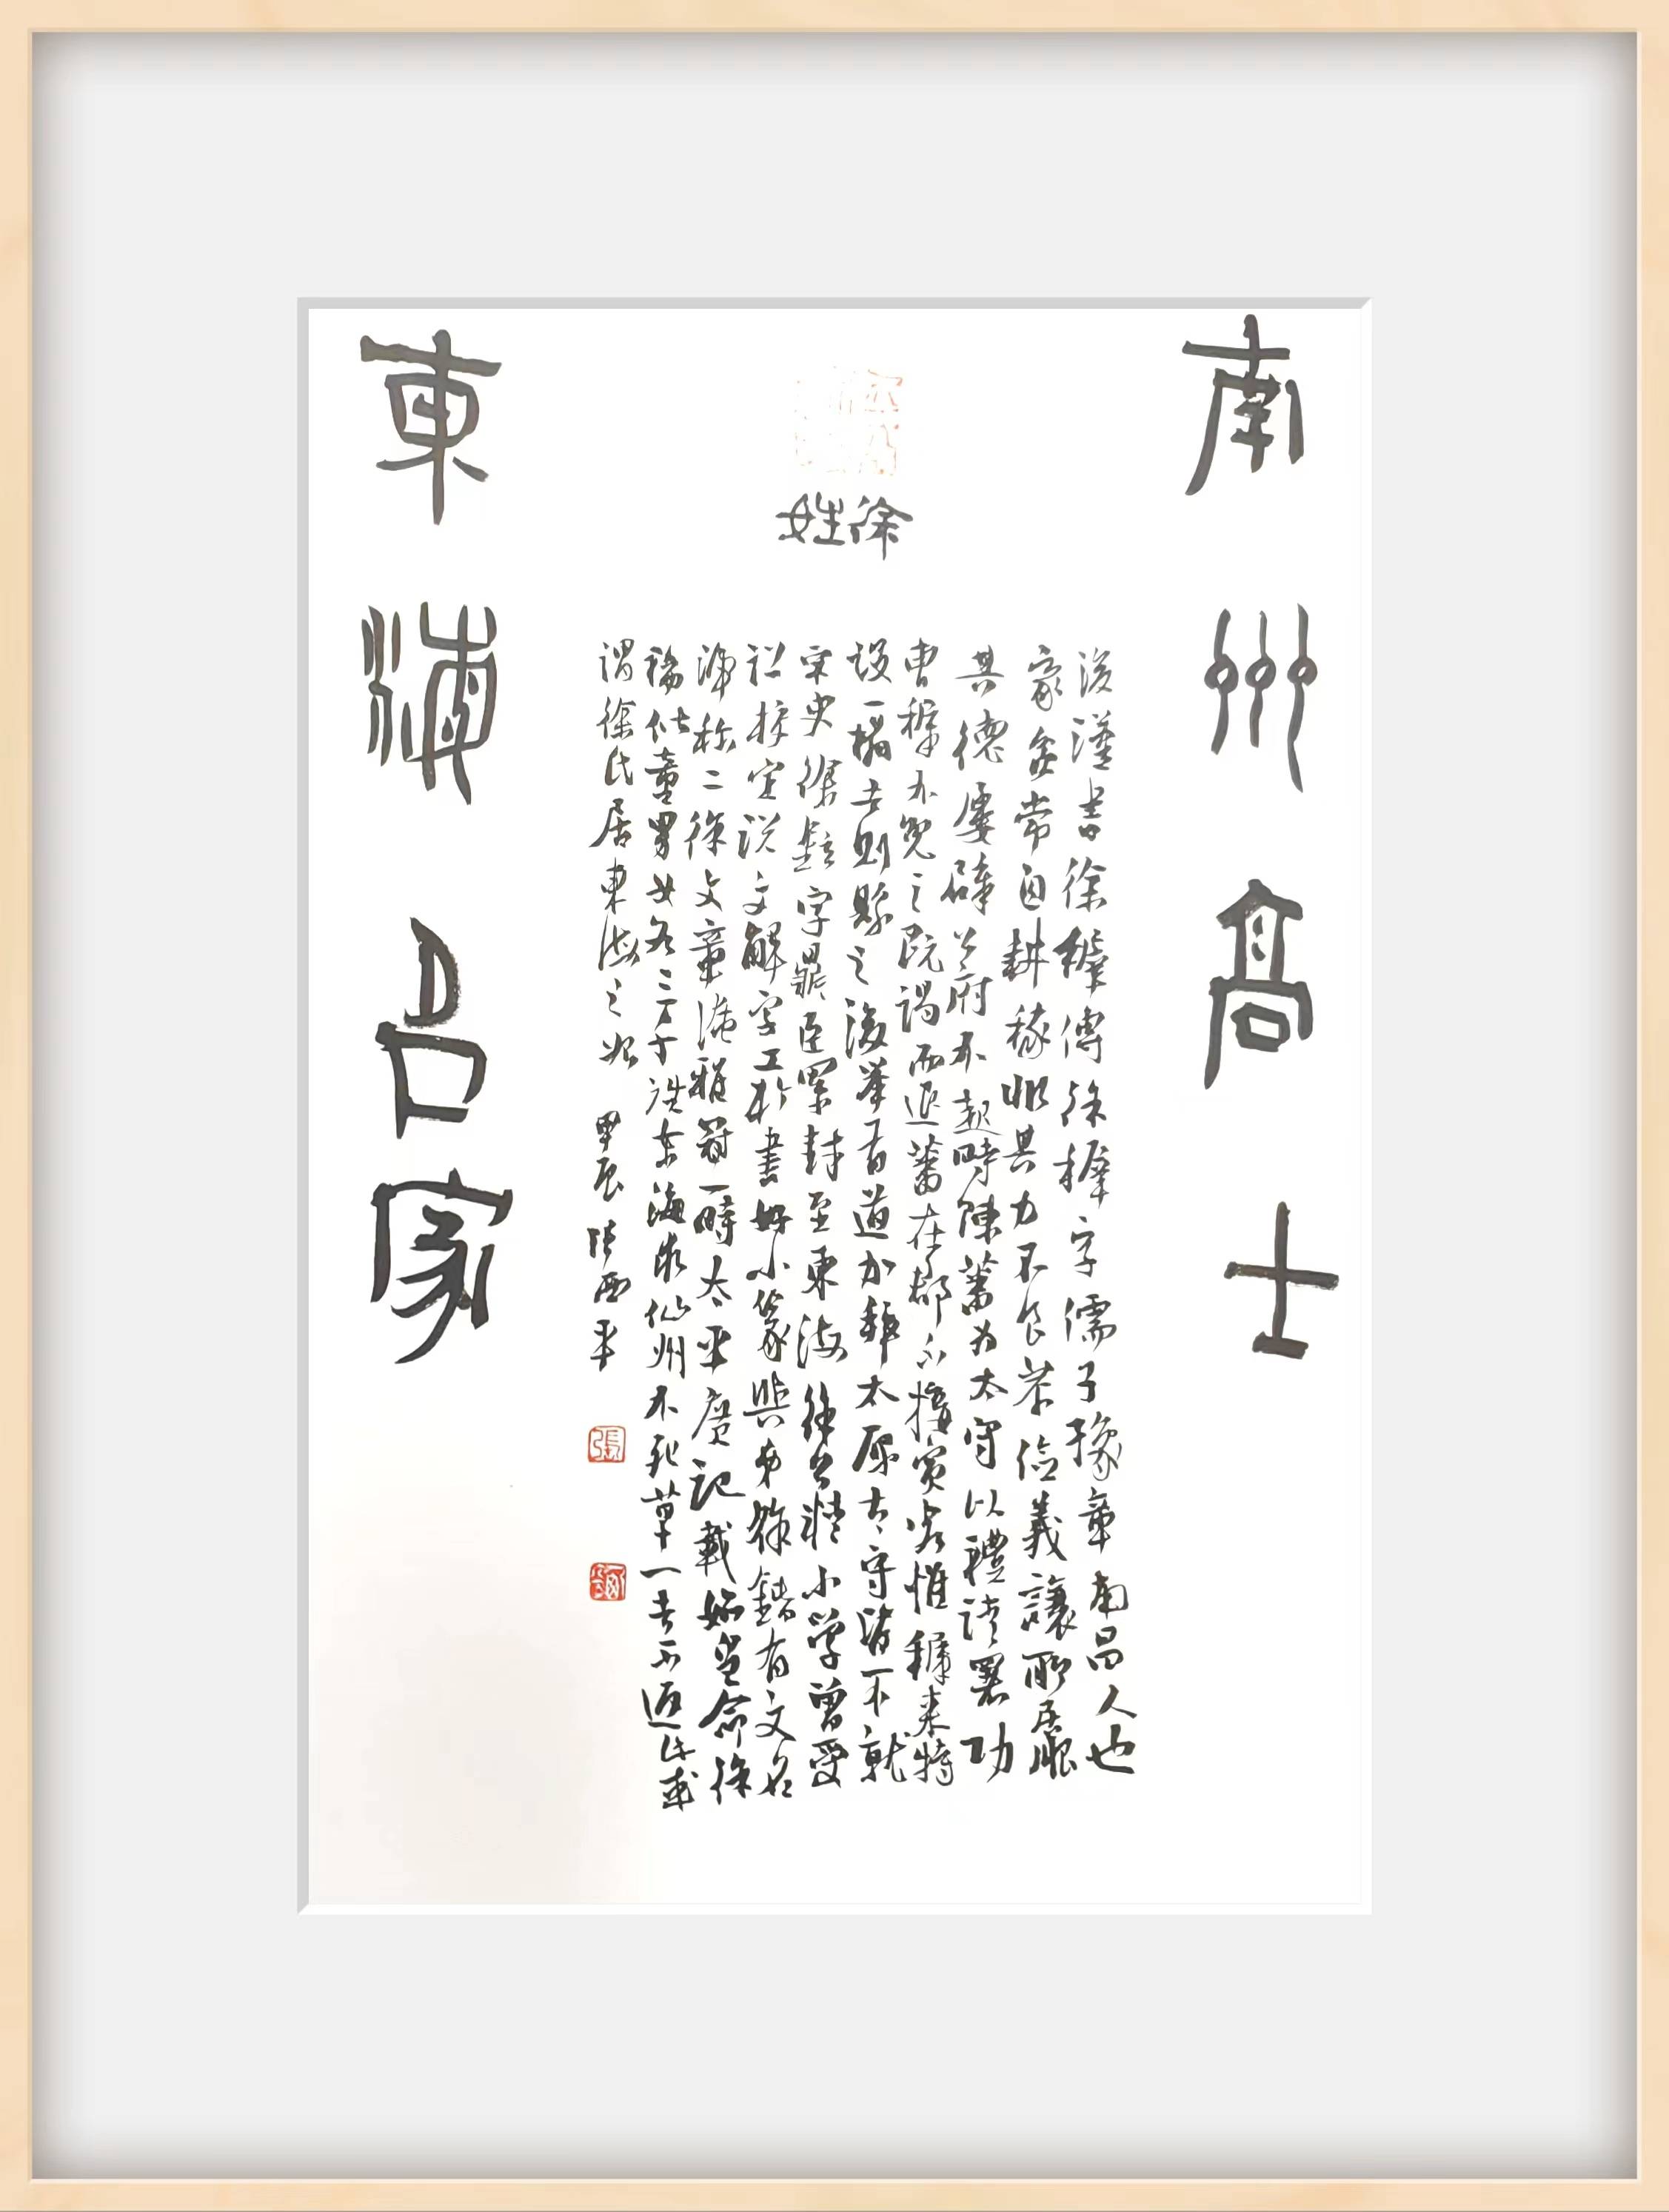 南州高士
徐姓
後漢書徐穉傳徐穉字儒子豫章南昌人也
家貧常自耕稼非其力不食恭儉義讓所居服
其德屢辟公府不起時陳蕃为太守以禮請署功
曹穉不免之既謁而退蕃在郡不接賓客惟穉来特
设一榻去则縣之後舉有道家拜太原太守皆不就
宋史徐鉉字鼎臣累封至東海徐公精小学曾受
诏挍定说文解字工於書好小篆與弟徐鍇有文名
译称二徐文章淹雅冠一時太平廣記載始皇命徐
福儿童男女各三千于祖东海求仙州不死草一去不返後或
谓徐氏居東海之始 甲辰 张西平
東海名家
張